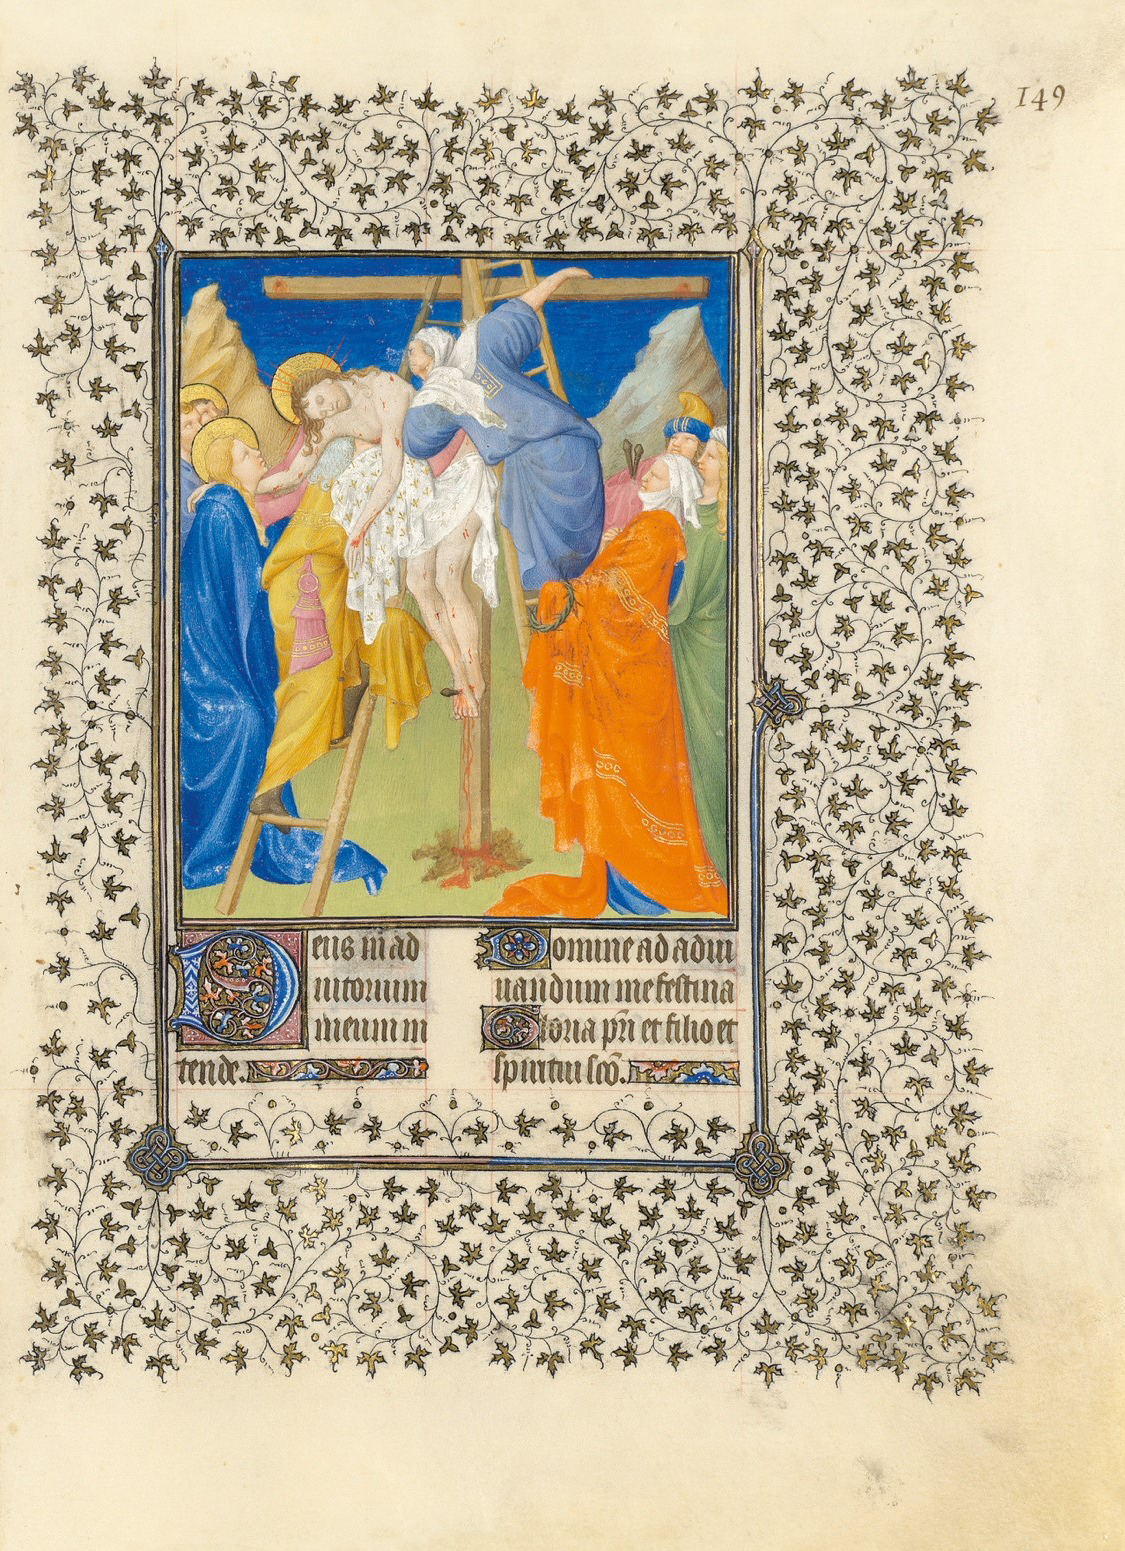 149
Deus in ad
iutorium
meum in
tende.
Domine ad adiu
uandum me festina
Gloria pr̄i et filio et
spiritui sc̄o.